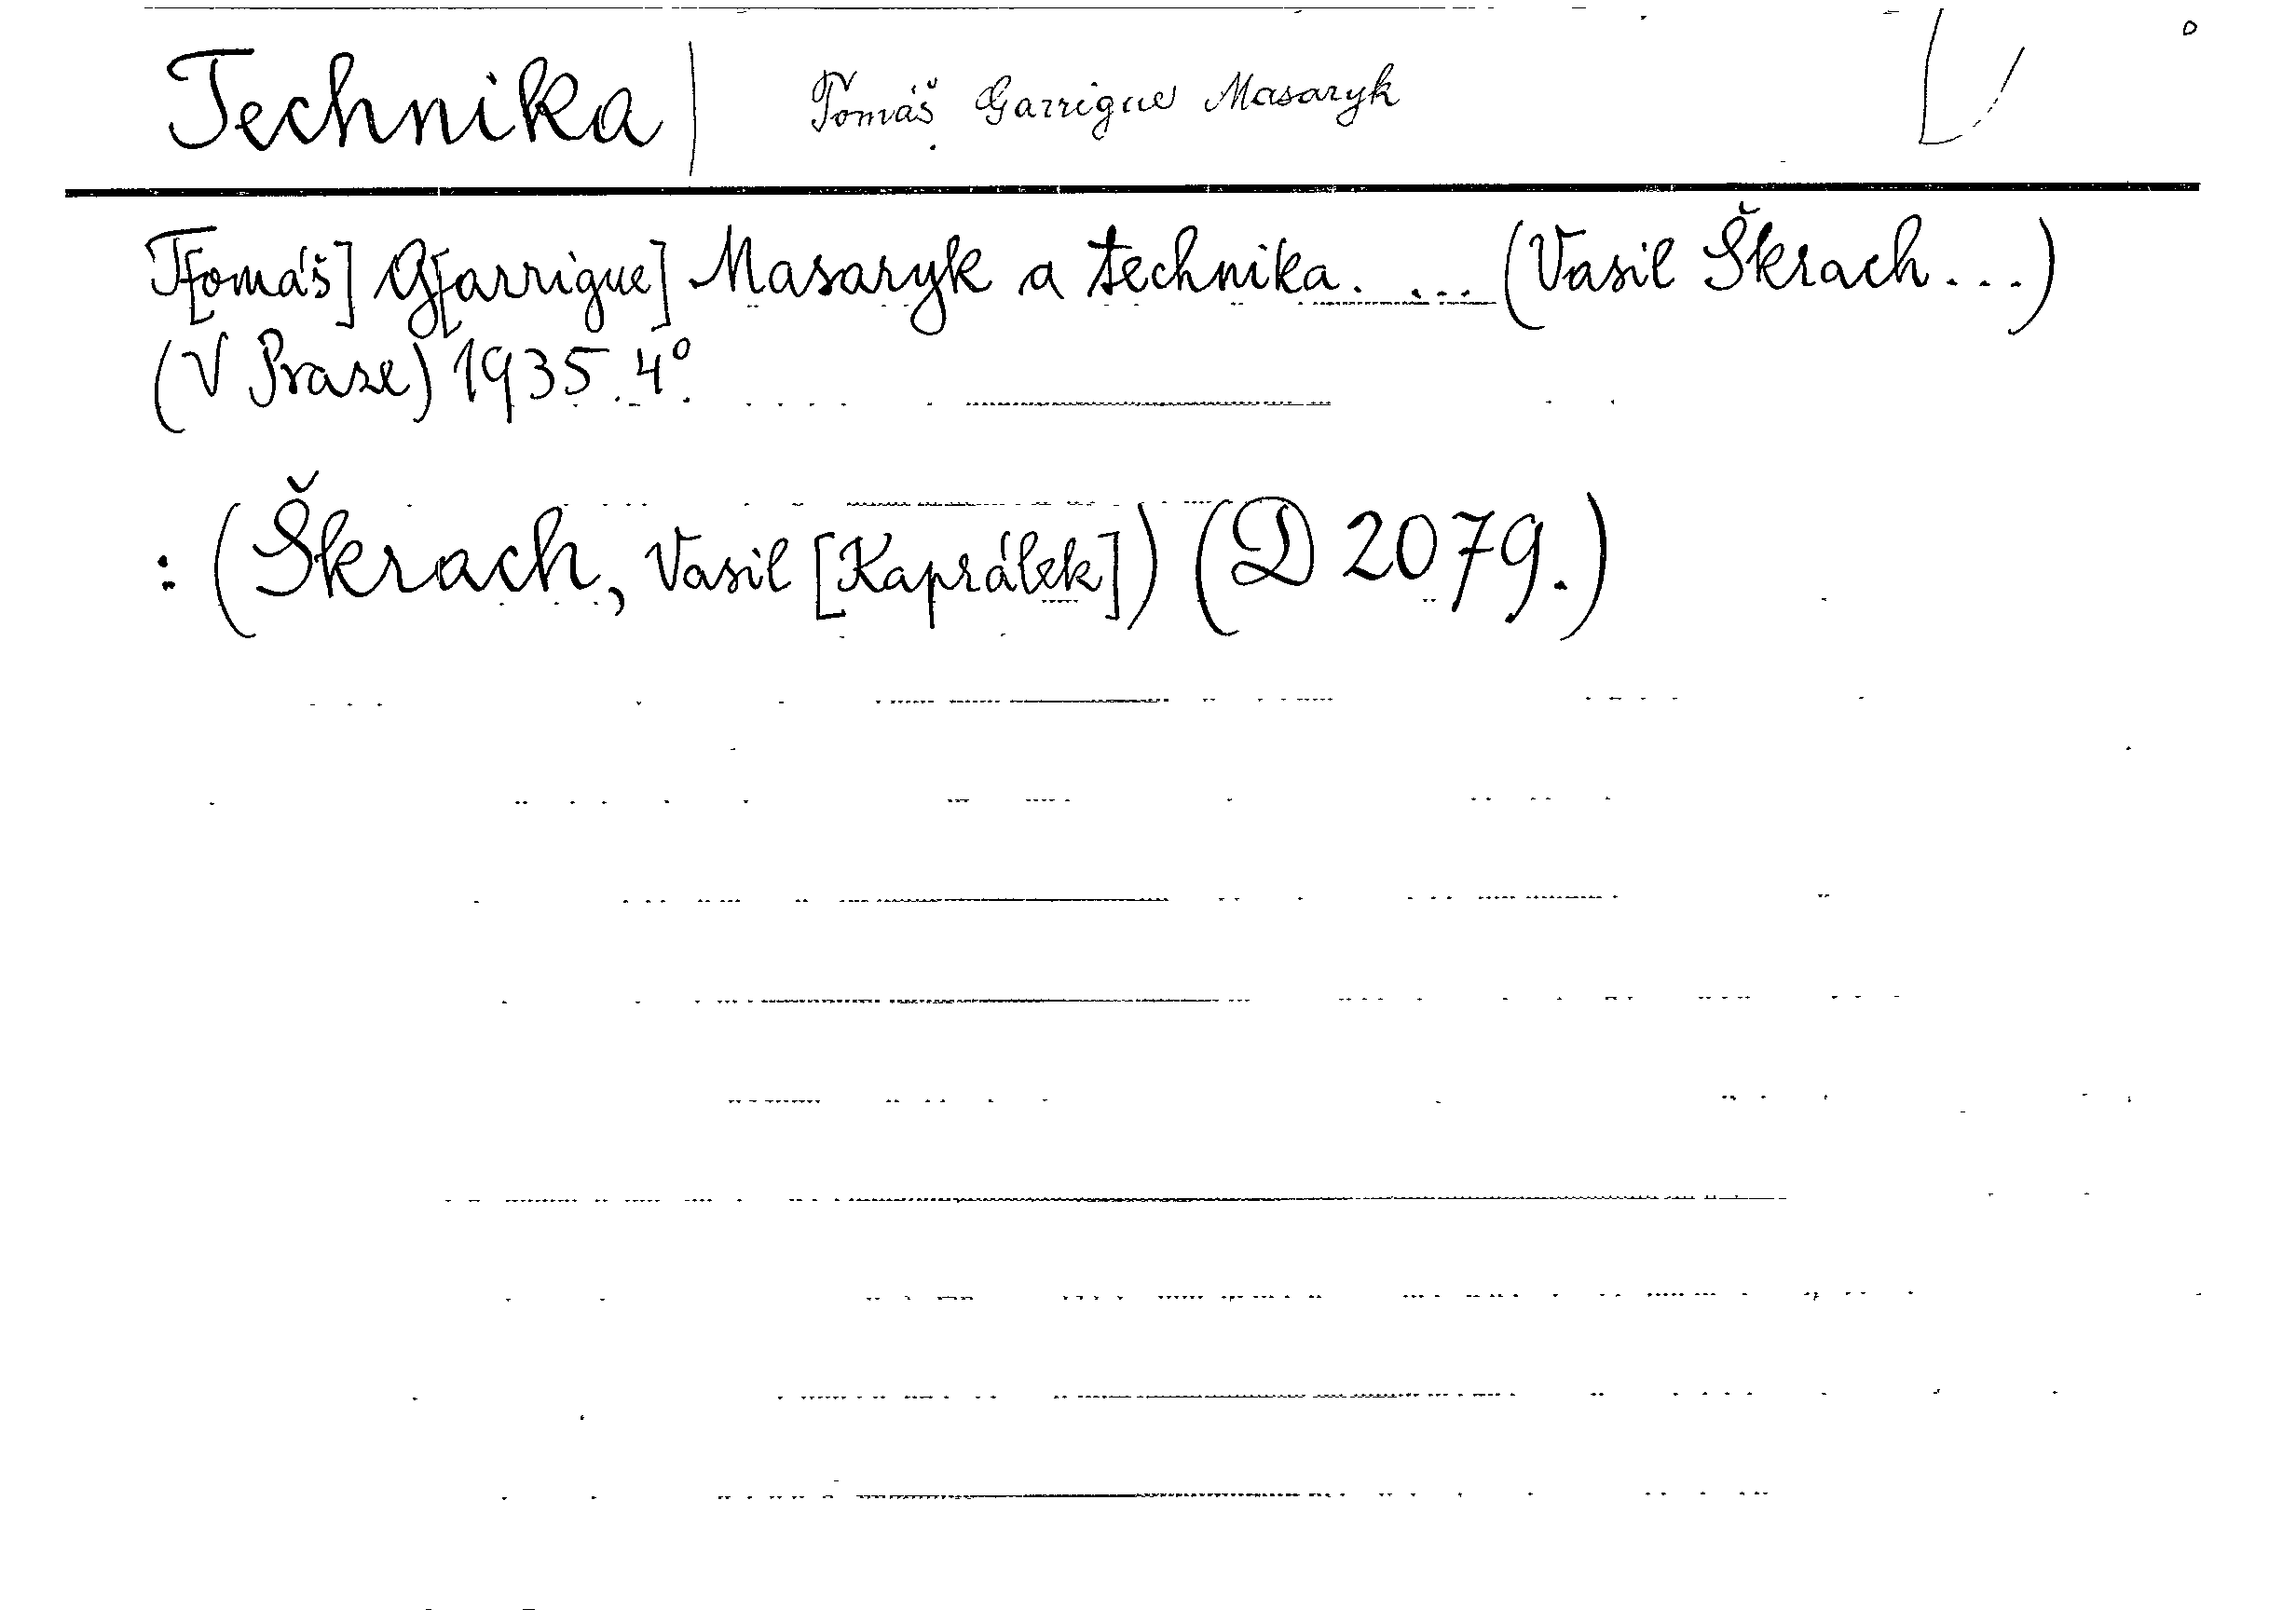 Technika | Tomáš Garrigue Masaryk
T[omáš] G[arrigue] Masaryk a technika. ... (Vasil Škrach...)
(V Praze) 1935. 4°.
: (Škrach, Vasil [Kaprálek]) (D 2079.)